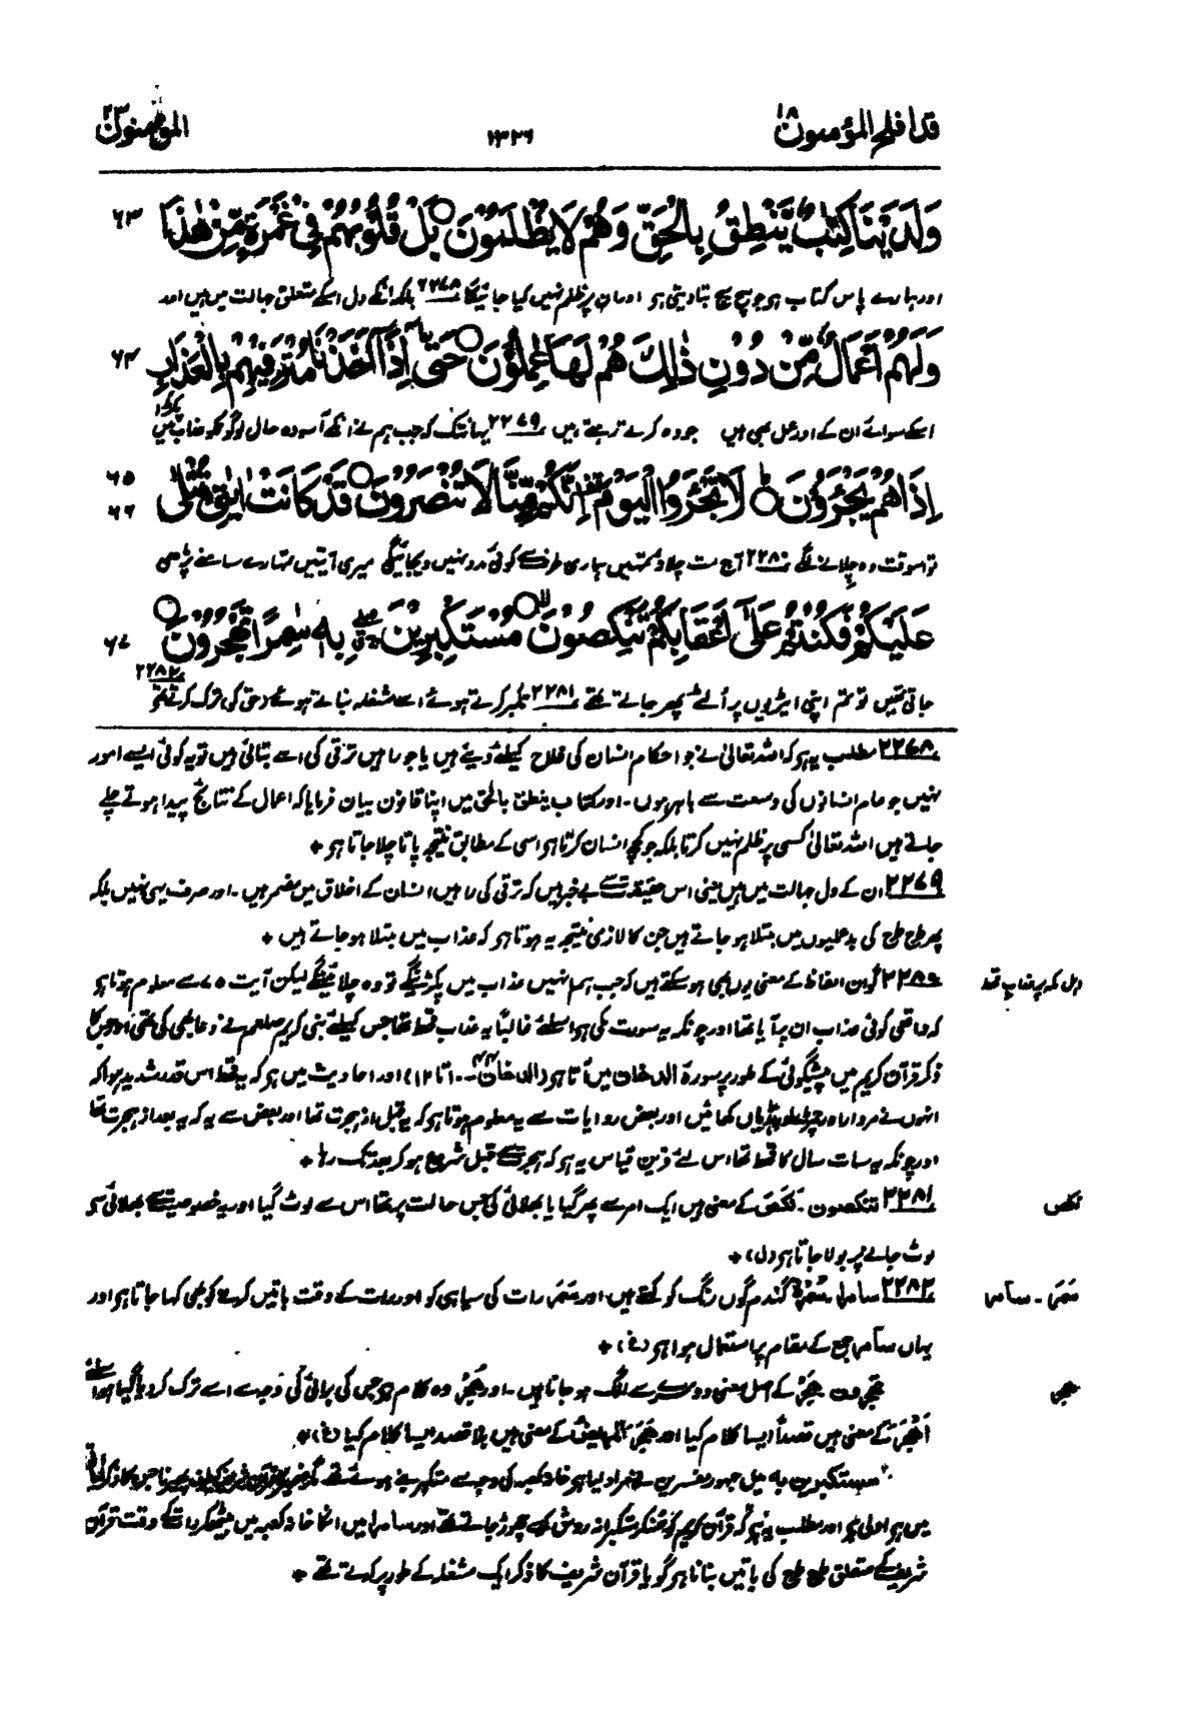 قد افلح المؤمنون ۱۸
۱۳۳۶
المؤمنون ۲۳
وَلَدَيْنَا كِتٰبٌ يَّنْطِقُ بِالْحَقِّ وَهُمْ لَا يُظْلَمُوْنَ ○ بَلْ قُلُوْبُهُمْ فِيْ غَمْرَةٍ مِّنْ هٰذَا ۶۳
اور ہمارے پاس کتاب ہو جو سچ سچ بتا دیتی ہو اور ان پر ظلم نہیں کیا جائیگا ۲۲۷۸ بلکہ انکے دل اسکے متعلق جہالت میں ہیں اور
وَلَهُمْ اَعْمَالٌ مِّنْ دُوْنِ ذٰلِكَ هُمْ لَهَا عٰمِلُوْنَ ○ حَتّٰٓى اِذَآ اَخَذْنَا مُتْرَفِيْهِمْ بِالْعَذَابِ ۶۴
اسکے سوائے ان کے اور عمل بھی ہیں جو وہ کرتے رہتے ہیں ۲۲۷۹ یہانتک کہ جب ہم نے انکے آسودہ حال لوگوں کو عذاب میں پکڑا
اِذَا هُمْ يَجْـَٔرُوْنَ ○ لَا تَجْـَٔرُوا الْيَوْمَ اِنَّكُمْ مِّنَّا لَا تُنْصَرُوْنَ ○ قَدْ كَانَتْ اٰيٰتِيْ تُتْلٰى ۶۵ ۶۶
تو اسوقت وہ چلانے لگے ۲۲۸۰ آج مت چلاؤ تمہیں ہماری طرف سے کوئی مدد نہیں دیجائیگی میری آیتیں تمہارے سامنے پڑھی
عَلَيْكُمْ فَكُنْتُمْ عَلٰٓى اَعْقَابِكُمْ تَنْكِصُوْنَ ○ مُسْتَكْبِرِيْنَ بِهٖ سٰمِرًا تَهْجُرُوْنَ ○ ۶۷
جاتی تھیں تو تم اپنی ایڑیوں پر اُلٹے پھر جاتے تھے ۲۲۸۱ تکبر کرتے ہوئے اسے مشغلہ بناتے ہوئے (حق کی) ترک کرتے تھے ۲۲۸۲
۲۲۷۸ مطلب یہ ہو کہ اللہ تعالیٰ نے جو احکام انسان کی فلاح کیلئے دیئے ہیں یا جو راہیں ترقی کی اسے بتائی ہیں تو یہ کوئی ایسے امور
نہیں جو عام انسانوں کی وسعت سے باہر ہوں۔ اور کتاب ینطق بالحق میں اپنا قانون بیان فرمایا کہ اعمال کے نتائج پیدا ہوتے چلے
جاتے ہیں اللہ تعالیٰ کسی پر ظلم نہیں کرتا بلکہ جو کچھ انسان کرتا ہو اسی کے مطابق نتیجہ پاتا چلا جاتا ہو +
۲۲۷۹ ان کے دل جہالت میں ہیں یعنی اس حقیقت سے بے خبر ہیں کہ ترقی کی راہیں انسان کے اخلاق میں مضمر ہیں۔ اور صرف یہی نہیں بلکہ
پھر طرح طرح کی بدعملیوں میں مبتلا ہو جاتے ہیں جن کا لازمی نتیجہ یہ ہوتا ہو کہ عذاب میں مبتلا ہو جاتے ہیں +
۲۲۸۰ گو ان الفاظ کے معنی یوں بھی ہو سکتے ہیں کہ جب ہم انہیں عذاب میں پکڑینگے تو وہ چلائینگے لیکن آیت ۷۵ سے معلوم ہوتا ہو
اہل مکہ پر عذاب قحط
کہ واقعی کوئی عذاب ان پر آیا تھا اور چونکہ یہ سورت مکی ہو اسلئے غالباً یہ عذاب قحط تھا جس کیلئے نبی کریم صلعم نے دعا بھی کی تھی اور جس کا
ذکر قرآن کریم میں پیشگوئی کے طور پر سورۃ الدخان میں آتا ہو (الدخان ۴۴ - ۱۰ تا ۱۲) اور احادیث میں ہو کہ یہ قحط اس قدر شدید ہوا کہ
انہوں نے مردار اور چمڑے اور ہڈیاں کھائیں اور بعض روایات سے یہ معلوم ہوتا ہو کہ یہ قبل از ہجرت تھا اور بعض سے یہ کہ یہ بعد از ہجرت تھا
اور چونکہ یہ سات سال کا قحط تھا اس لئے قرین قیاس یہ ہو کہ ہجرت سے قبل شروع ہو کر بعد تک رہا +
۲۲۸۱ تنکصون۔ نَکَصَ کے معنی ہیں ایک امر سے پھر گیا یا بھلائی کی جس حالت پر تھا اس سے لوٹ گیا اور یہ خصوصیت سے بھلائی سے
نکص
لوٹ جانے پر بولا جاتا ہو (ل) +
۲۲۸۲ سامرا۔ سُمْرَۃ گندم گوں رنگ کو کہتے ہیں اور سَمَر رات کی سیاہی کو اور رات کے وقت باتیں کرنے کو بھی کہا جاتا ہو اور
سَمَر۔ سامر
یہاں سامر جمع کے مقام پر استعمال ہوا ہو (غ) +
تھجرون ھجر کے اصل معنی دوسرے سے الگ ہو جانا ہیں۔ اور ھُجْر وہ کلام ہو جس کی برائی کی وجہ سے اسے ترک کر دیا گیا ہو اسلئے
ھجر
اَھْجَرَ کے معنی ہیں قصداً ایسا کلام کیا اور ھَجَرَ المریضُ کے معنی ہیں بلا قصد ایسا کلام کیا (غ) +
مستکبرین بہ میں جمہور مفسرین نے مراد لیا ہو خانہ کعبہ کی وجہ سے متکبر بنے ہوئے تھے
میں ہو اولیٰ ہو اور مطلب یہ ہو کہ قرآن کریم کو سنکر متکبرانہ روش سے چھوڑ جاتے تھے اور سامرا میں انکا خانہ کعبہ میں بیٹھکر رات کے وقت قرآن
شریف کے متعلق طرح طرح کی باتیں بنانا ہو گویا قرآن شریف کا ذکر ایک مشغلہ کے طور پر کرتے تھے +